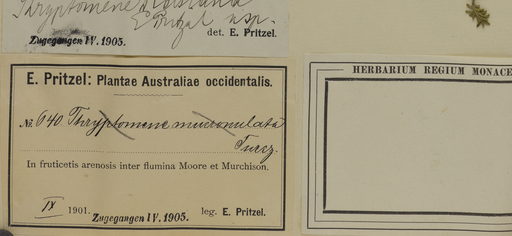 Thryptomene
E. Pritzel n sp.
Zugegangen IV. 1905.
det. E. Pritzel.
E. Pritzel: Plantae Australiae occidentalis.
No. 640 Thryptomene mucronulata
Turcz.
In fruticetis arenosis inter flumina Moore et Murchison.
IX 1901. Zugegangen IV. 1905. leg. E. Pritzel.
HERBARIUM REGIUM MONACE